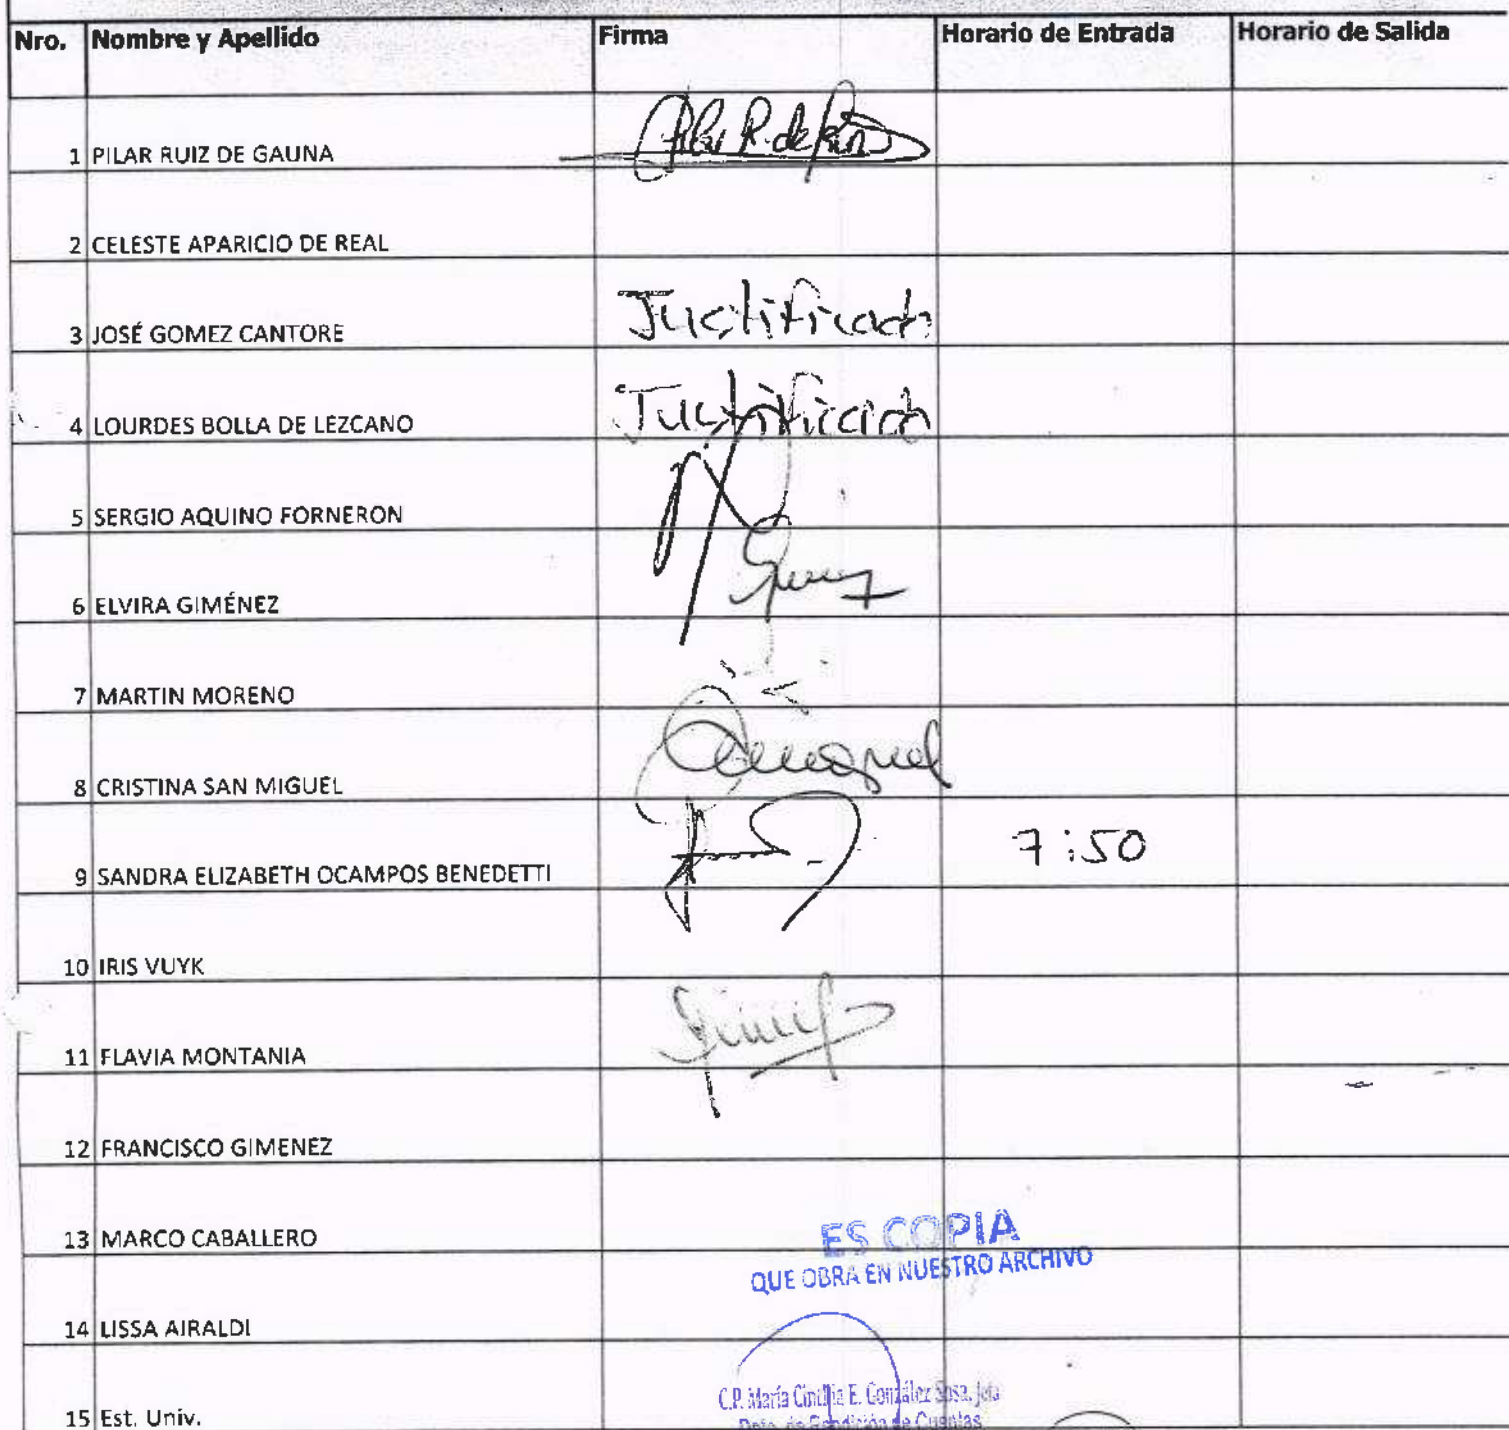 Nro. Nombre y Apellido Firma Horario de Entrada Horario de Salida
1 PILAR RUIZ DE GAUNA Pilar R. de
2 CELESTE APARICIO DE REAL
3 JOSÉ GOMEZ CANTORE Justificado
4 LOURDES BOLLA DE LEZCANO Justificado
5 SERGIO AQUINO FORNERON
6 ELVIRA GIMÉNEZ
7 MARTIN MORENO
8 CRISTINA SAN MIGUEL
9 SANDRA ELIZABETH OCAMPOS BENEDETTI 7:50
10 IRIS VUYK
11 FLAVIA MONTANIA
12 FRANCISCO GIMENEZ
13 MARCO CABALLERO
ES COPIA
QUE OBRA EN NUESTRO ARCHIVO
14 LISSA AIRALDI
C.P. María Cinthia E. González Sosa, Jefa
15 Est. Univ.
Dpto. de Rendición de Cuentas